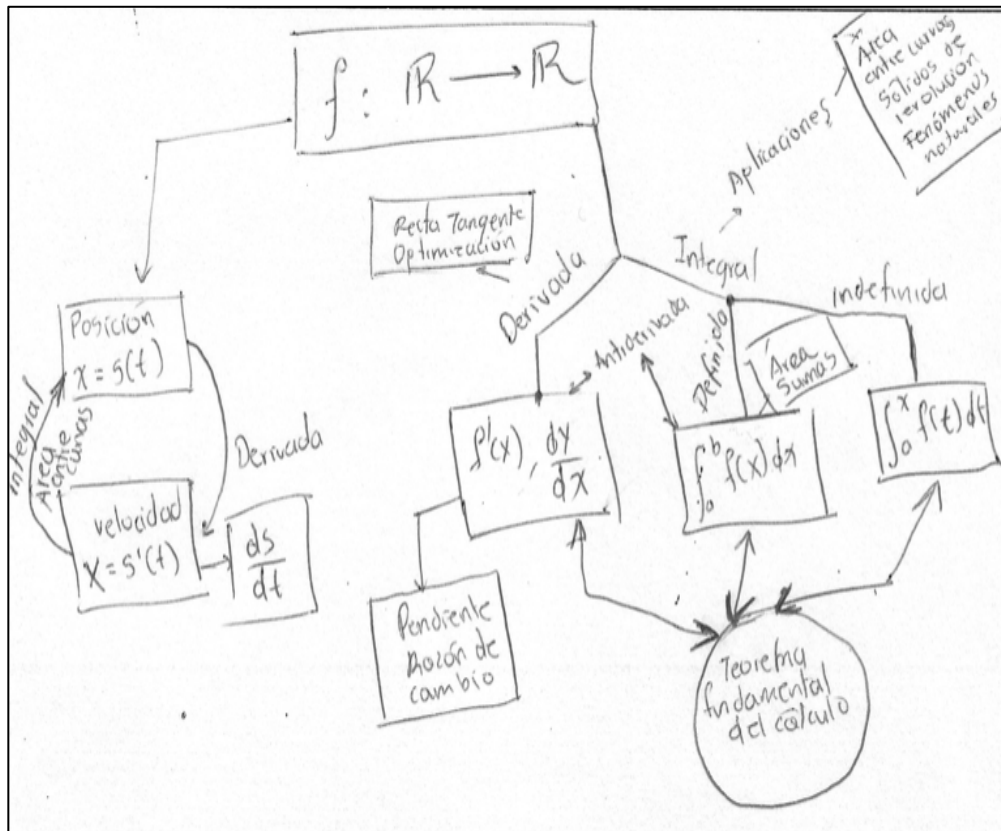 f: ℝ → ℝ
*
Area
entre curvas
Sólidos de
revolución
Fenómenos
naturales
Aplicaciones
Recta Tangente
Optimización
Derivada
Integral
indefinida
Definida
Antiderivada
Área
Sumas
Posición
x = s(t)
Integral
Área
entre
curvas
Derivada
velocidad
x = s'(t)
ds
dt
f'(x), dy
dx
∫ₐᵇ f(x) dx
∫₀ˣ f(t) dt
Pendiente
Razón de
cambio
Teorema
fundamental
del cálculo